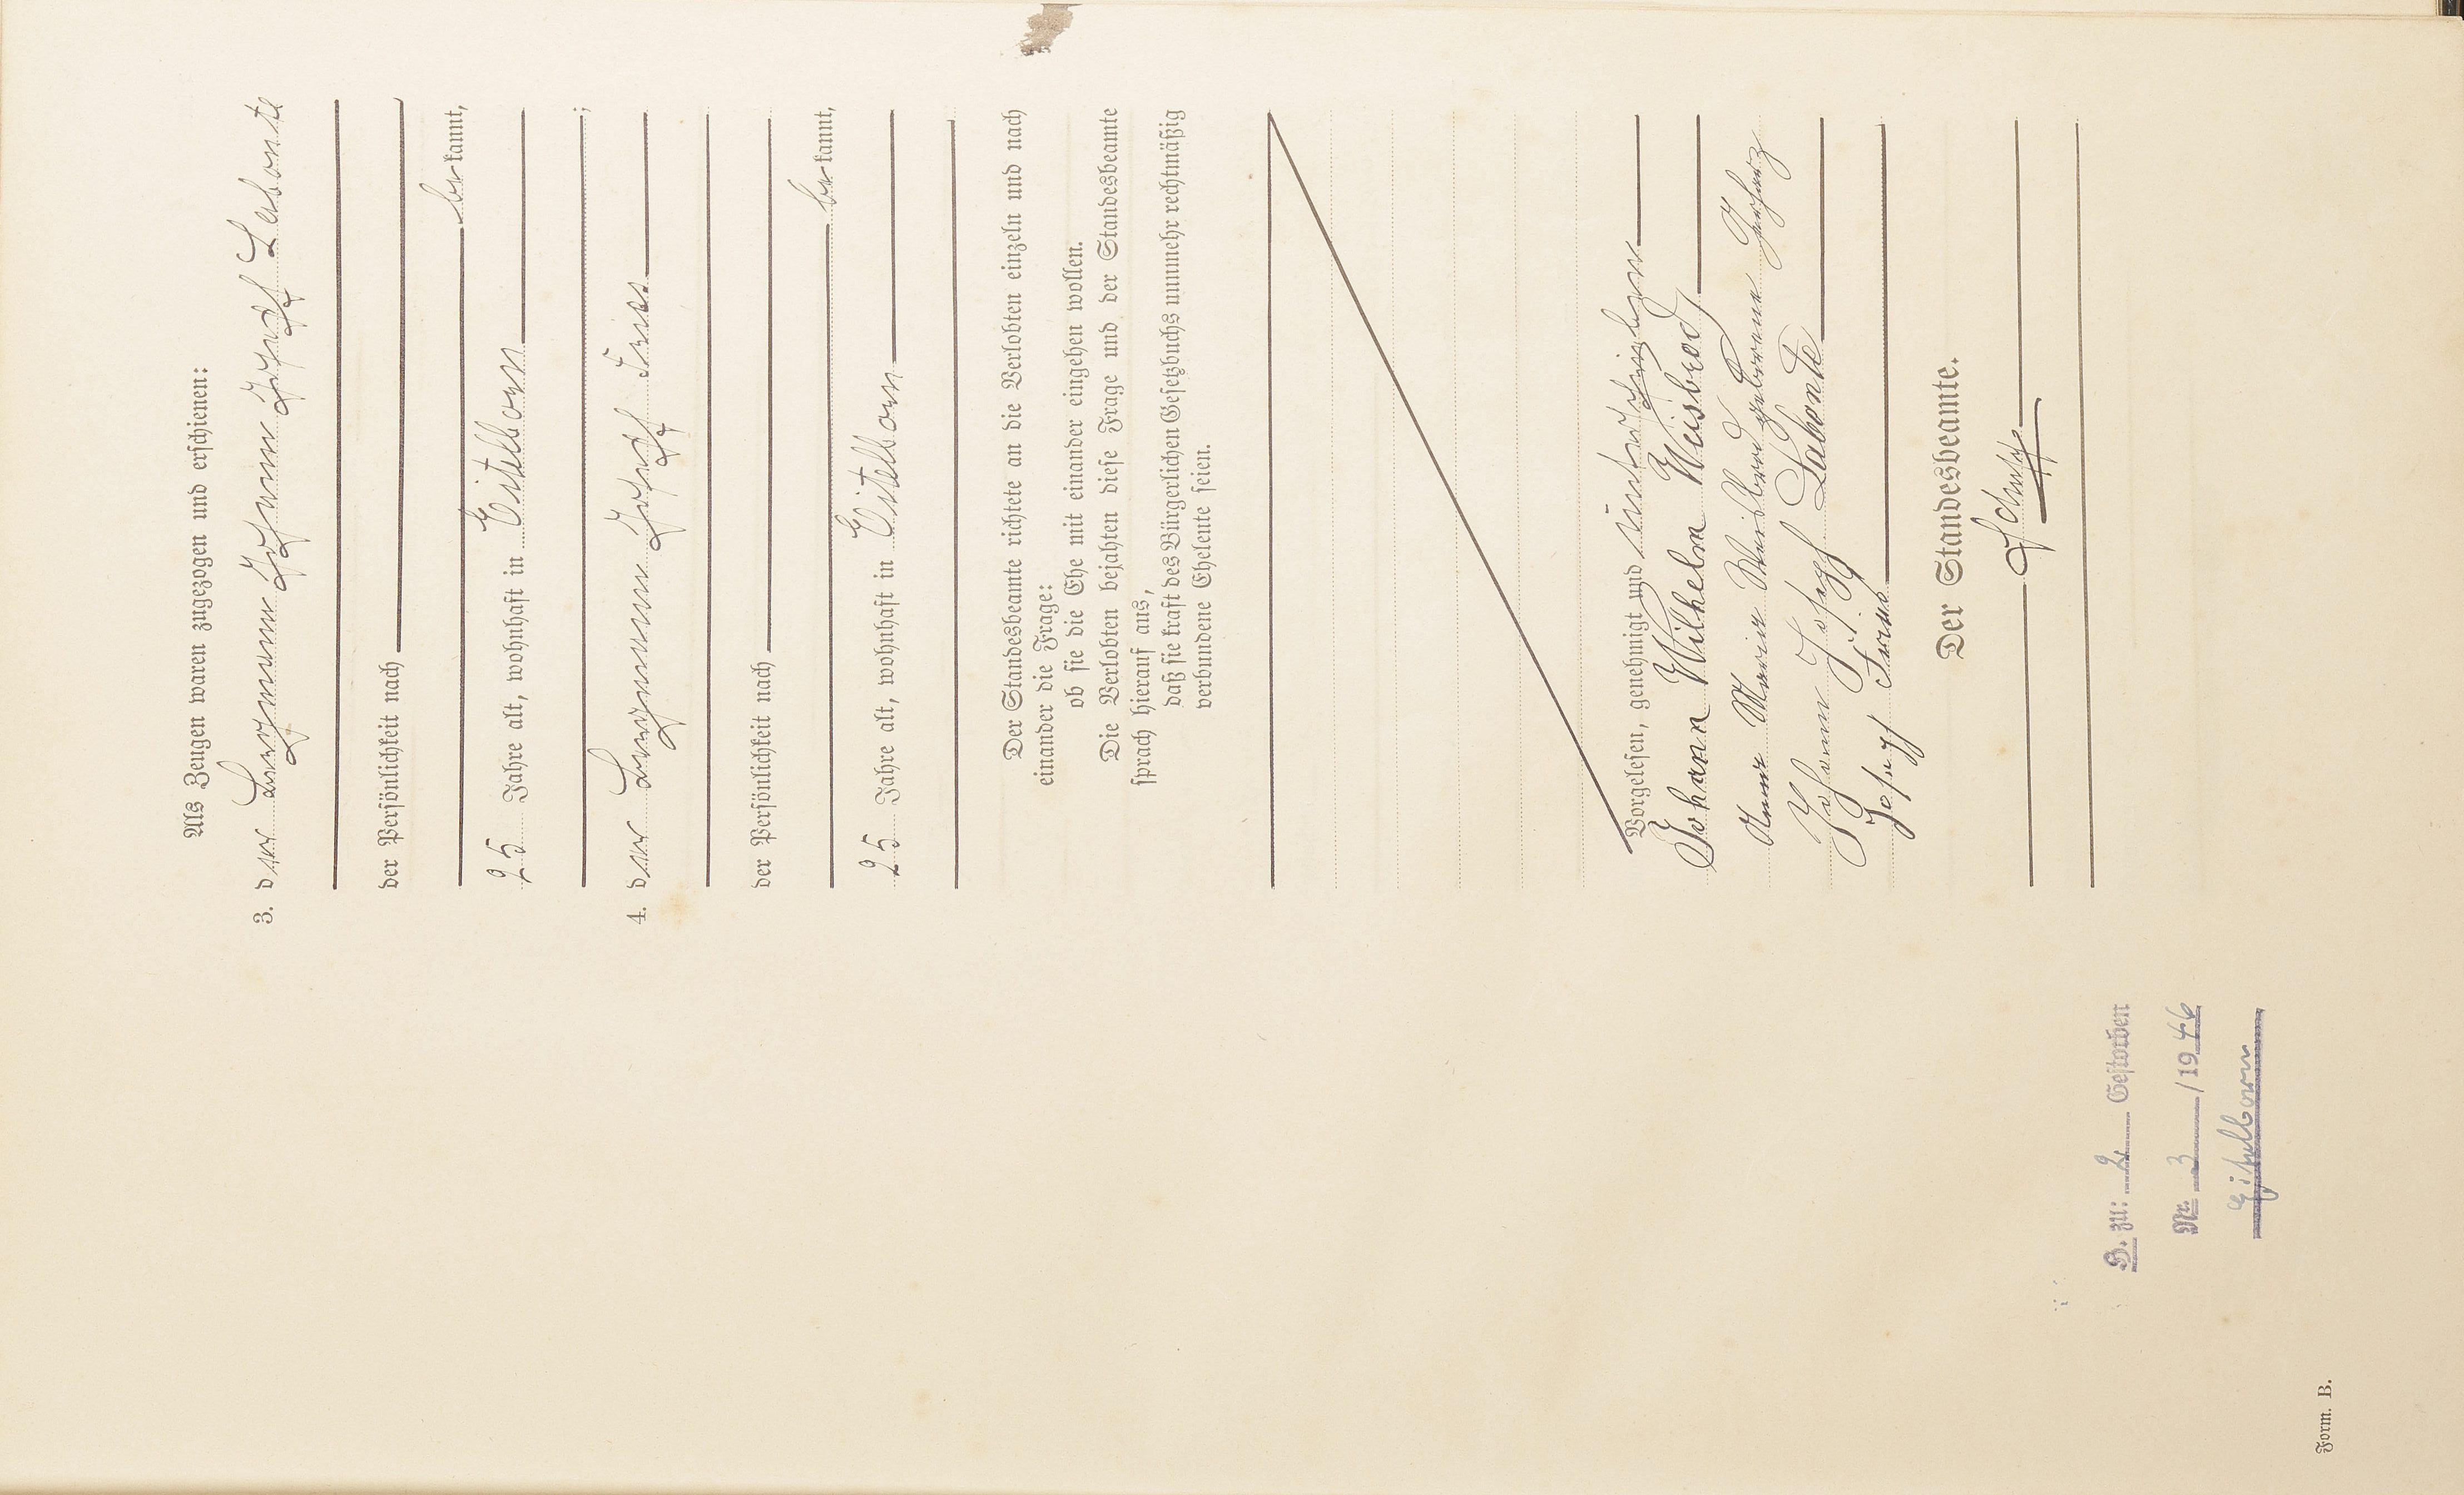 Als Zeugen waren zugezogen und erschienen:
3. der Bergmann Johann Josef Labonte
der Persönlichkeit nach
bekannt,
25 Jahre alt, wohnhaft in Eitelborn
;
4. der Bergmann Josef Fries
der Persönlichkeit nach
bekannt,
25 Jahre alt, wohnhaft in Eitelborn
Der Standesbeamte richtete an die Verlobten einzeln und nach
einander die Frage:
ob sie die Ehe mit einander eingehen wollen.
Die Verlobten bejahten diese Frage und der Standesbeamte
sprach hierauf aus,
daß sie kraft des Bürgerlichen Gesetzbuchs nunmehr rechtmäßig
verbundene Eheleute seien.
Vorgelesen, genehmigt und unterschrieben
Johann Wilhelm Weisbrod
Anna Maria Weisbrod geborene
Johann Josegf Labonte
Josegf Fries
Der Standesbeamte.
B. zu: 2 Gestorben
Nr. 3 / 1946
Eitelborn
Form. B.